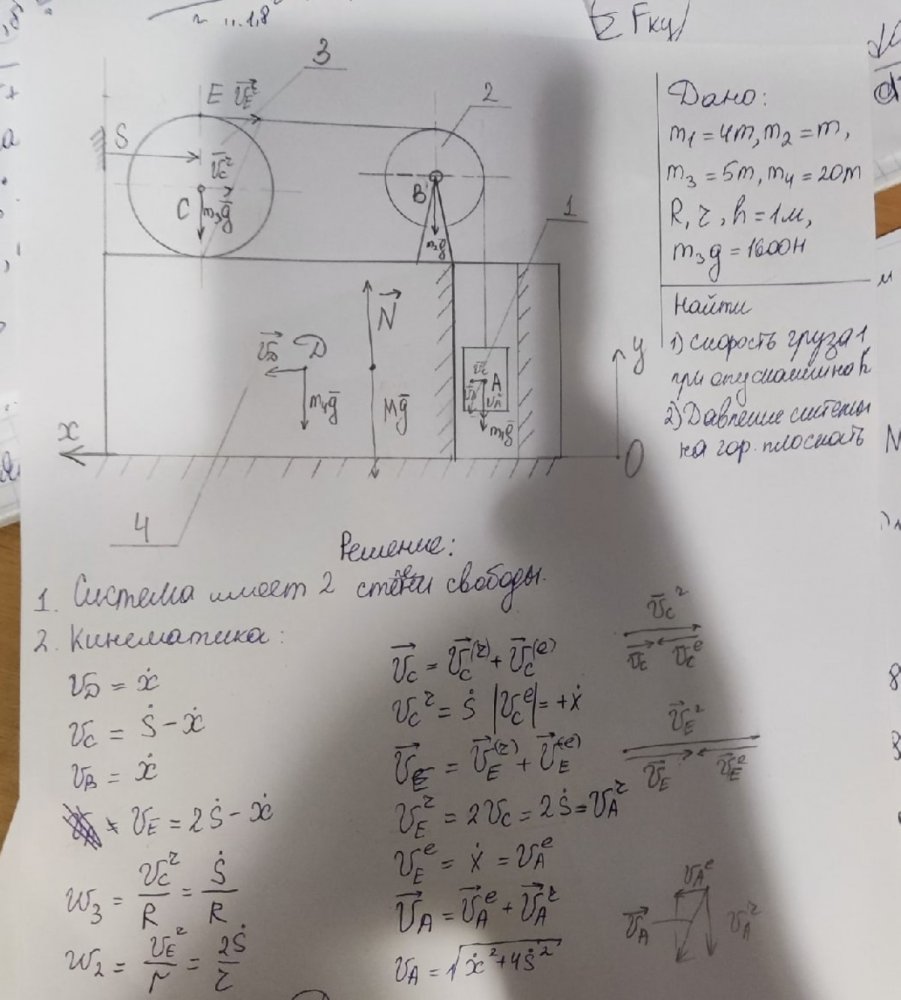 Σ Fкy
3
E v̄_E^r
2
S
v̄_C^r
C
m₃ḡ
B
m₂ḡ
1
Дано:
m₁ = 4m, m₂ = m,
m₃ = 5m, m₄ = 20m
R, r, h = 1м,
m₃g = 1600Н
Найти
1) скорость груза 1
при опускании на h
2) Давление системы
на гор. плоскость
N̄
v̄_D D
m₄ḡ
Mḡ
A
m₁ḡ
y
x
O
4
Решение:
1. Система имеет 2 степени свободы.
2. Кинематика:
v_D = ẋ
v_C = Ṡ - ẋ
v_B = ẋ
v_E = 2Ṡ - ẋ
ω₃ = v_C^r / R = Ṡ / R
ω₂ = v_E^r / r = 2Ṡ / r
v̄_C = v̄_C^(r) + v̄_C^(e)
v_C^r = Ṡ |v_C^e| = +ẋ
v̄_E = v̄_E^(r) + v̄_E^(e)
v_E^r = 2v_C = 2Ṡ = v_A^r
v_E^e = ẋ = v_A^e
v̄_A = v̄_A^e + v̄_A^r
v_A = √(ẋ² + 4Ṡ²)
v̄_C^r
v̄_C v̄_C^e
v̄_E^r
v̄_E v̄_E^e
v̄_A^e
v̄_A v̄_A^r